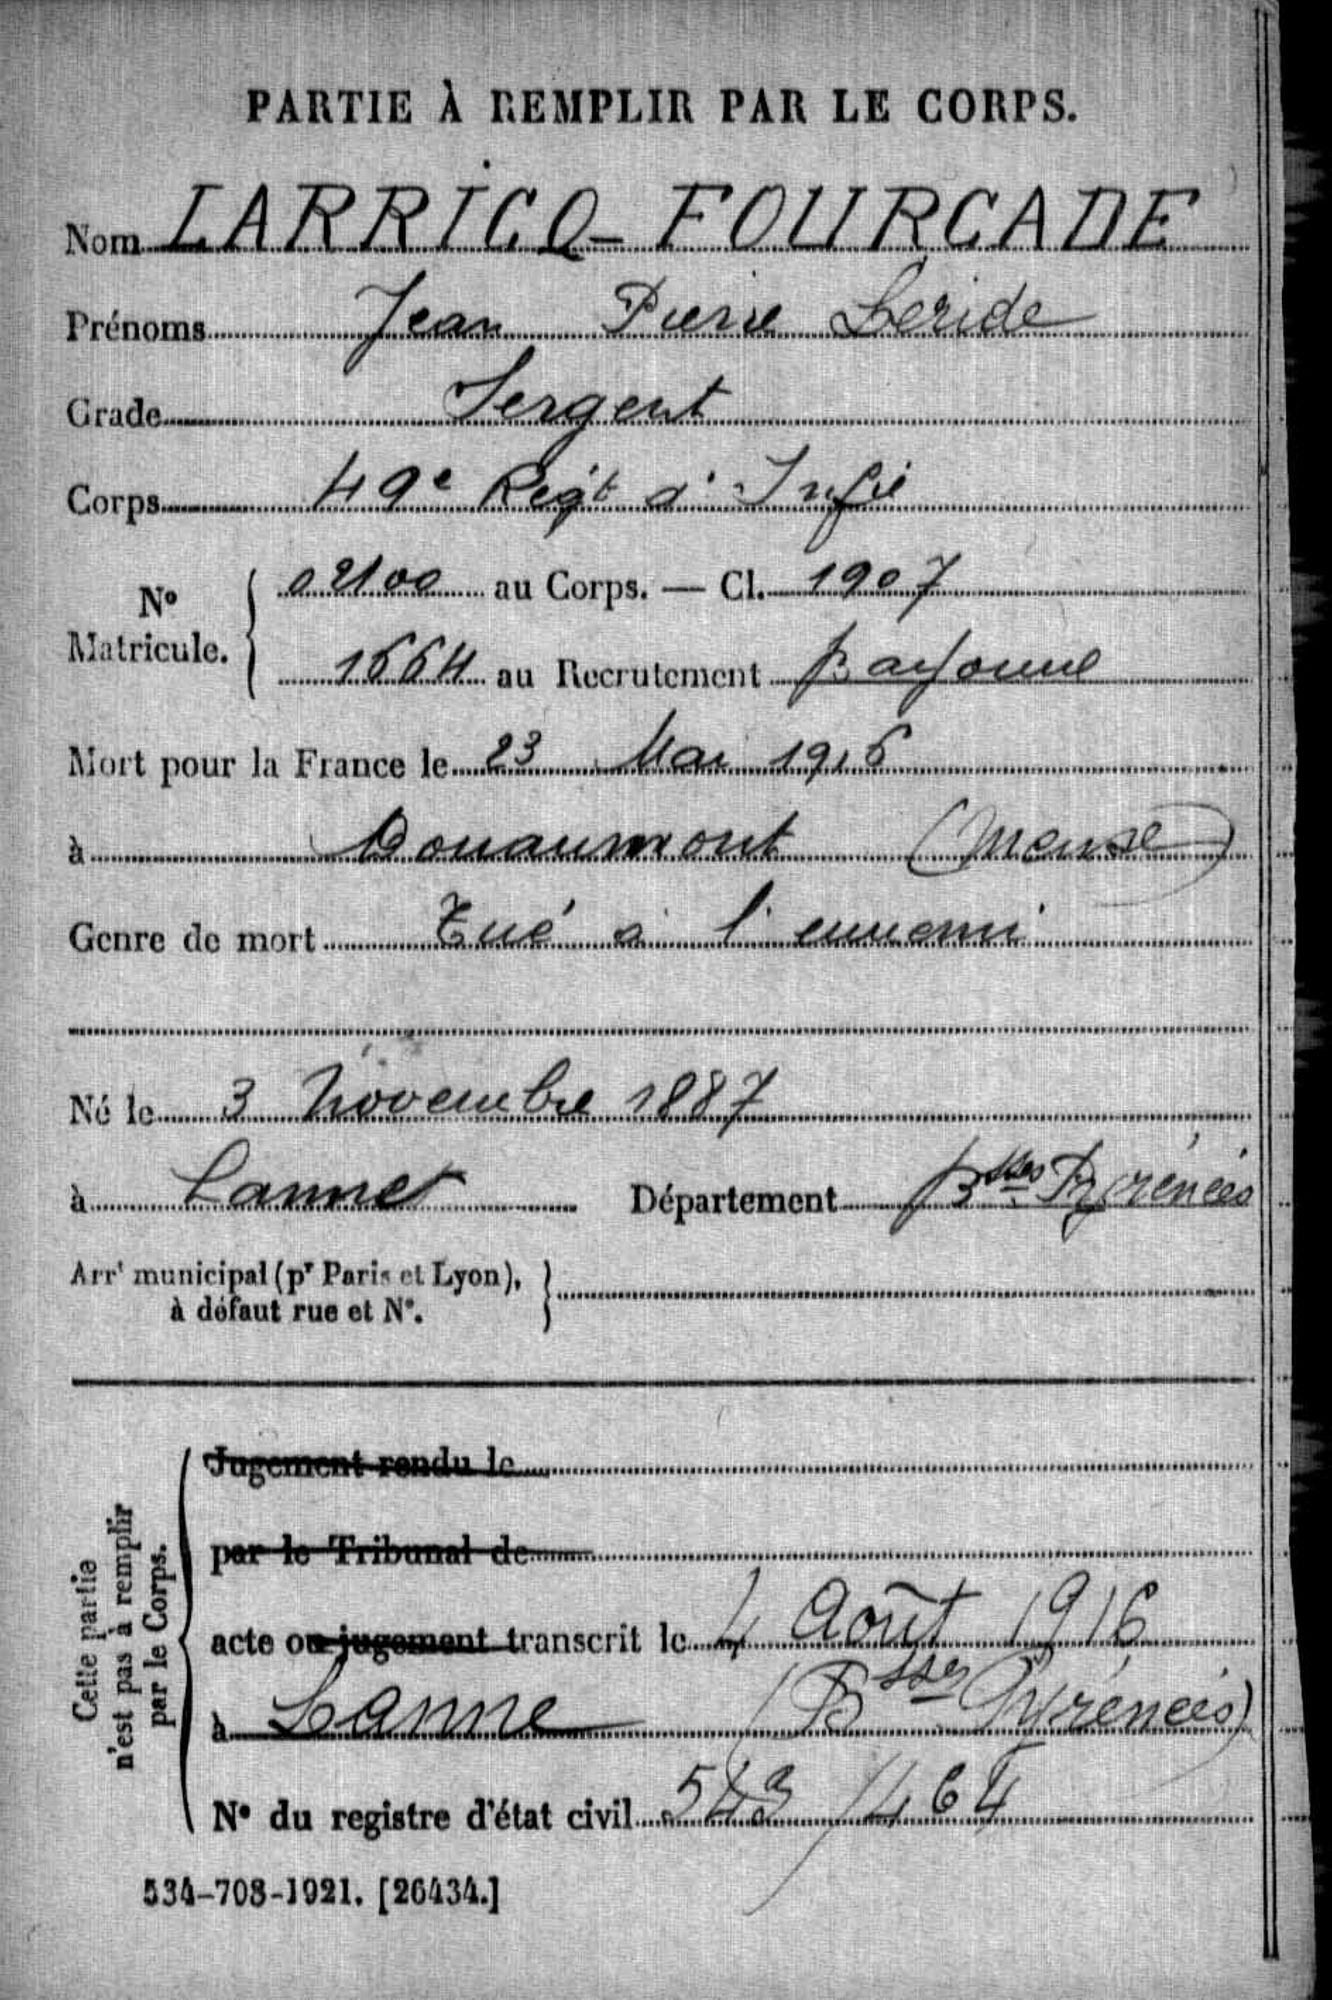 PARTIE À REMPLIR PAR LE CORPS.
Nom LARRICQ-FOURCADE
Prénoms Jean Pierre
Grade Sergent
Corps 49e Régt d'Infie
No Matricule. 02100 au Corps. — Cl. 1907
1664 au Recrutement Bayonne
Mort pour la France le 23 Mai 1916
à Douaumont (Meuse)
Genre de mort Tué à l'ennemi
Né le 3 Novembre 1887
à Lanne Département Bsses Pyrénées
Arrt municipal (pr Paris et Lyon),
à défaut rue et No.
Cette partie
n'est pas à remplir
par le Corps.
Jugement rendu le
par le Tribunal de
acte ou jugement transcrit le 4 Août 1916
à Lanne (Bsses Pyrénées)
No du registre d'état civil 543/464
534-708-1921. [26434.]